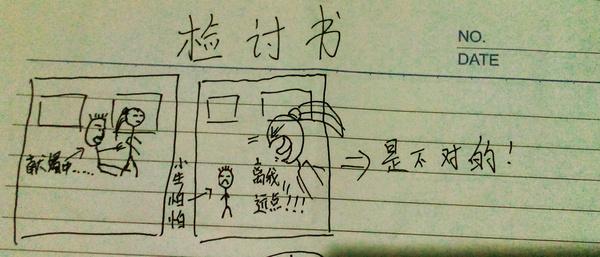 检讨书
NO.
DATE
献媚中......
小生怕怕
离我
远点!!!
是不对的!